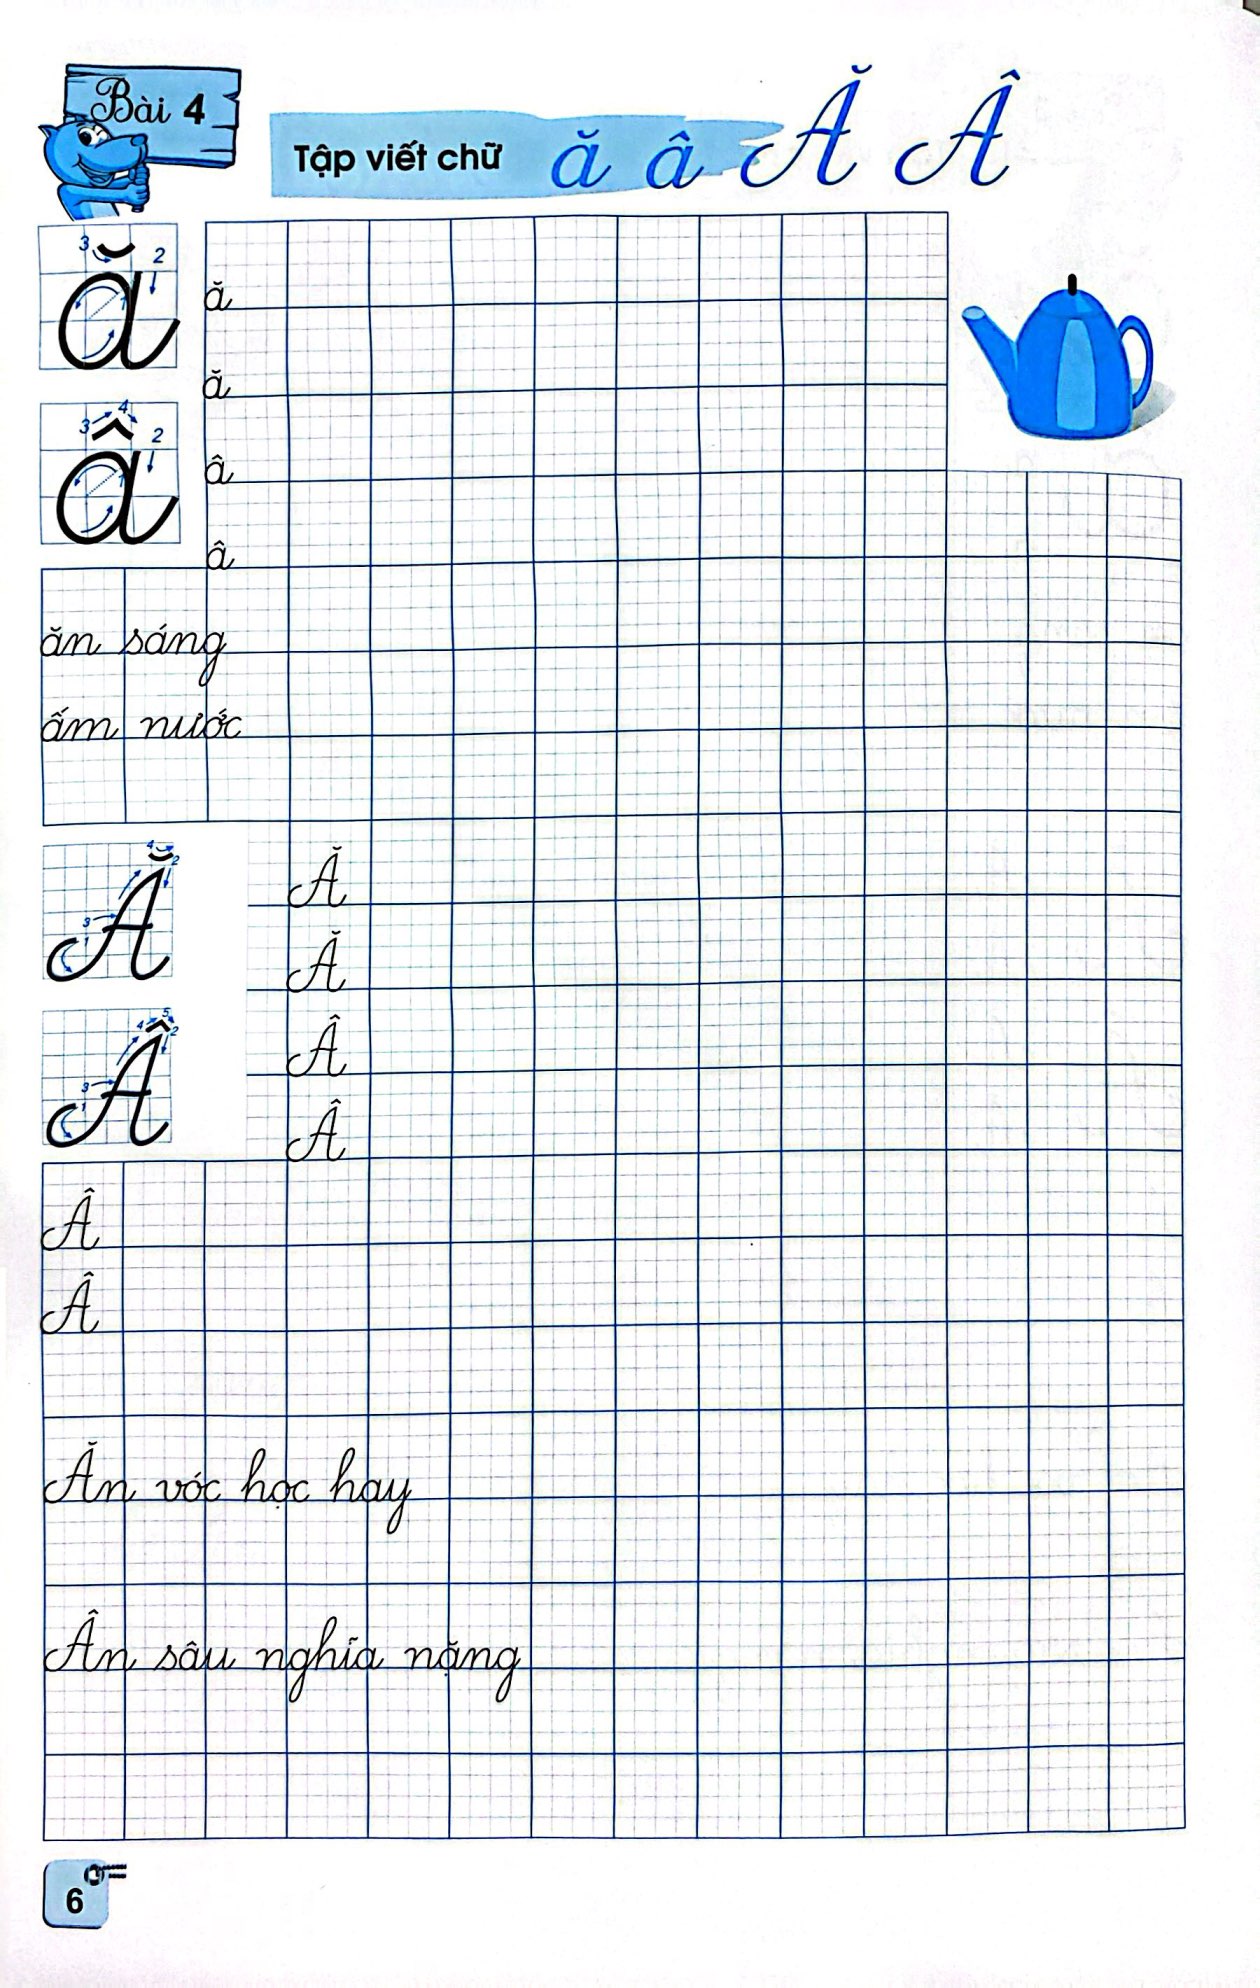 Bài 4
Tập viết chữ ă â Ă Â
3 2
ă
ă
ă
3 4 2
â
â
â
ăn sáng
ấm nước
4 2
3
1
Ă
Ă
Ă
4 5 2
3
1
Â
Â
Â
Â
Â
Ăn vóc học hay
Ân sâu nghĩa nặng
6